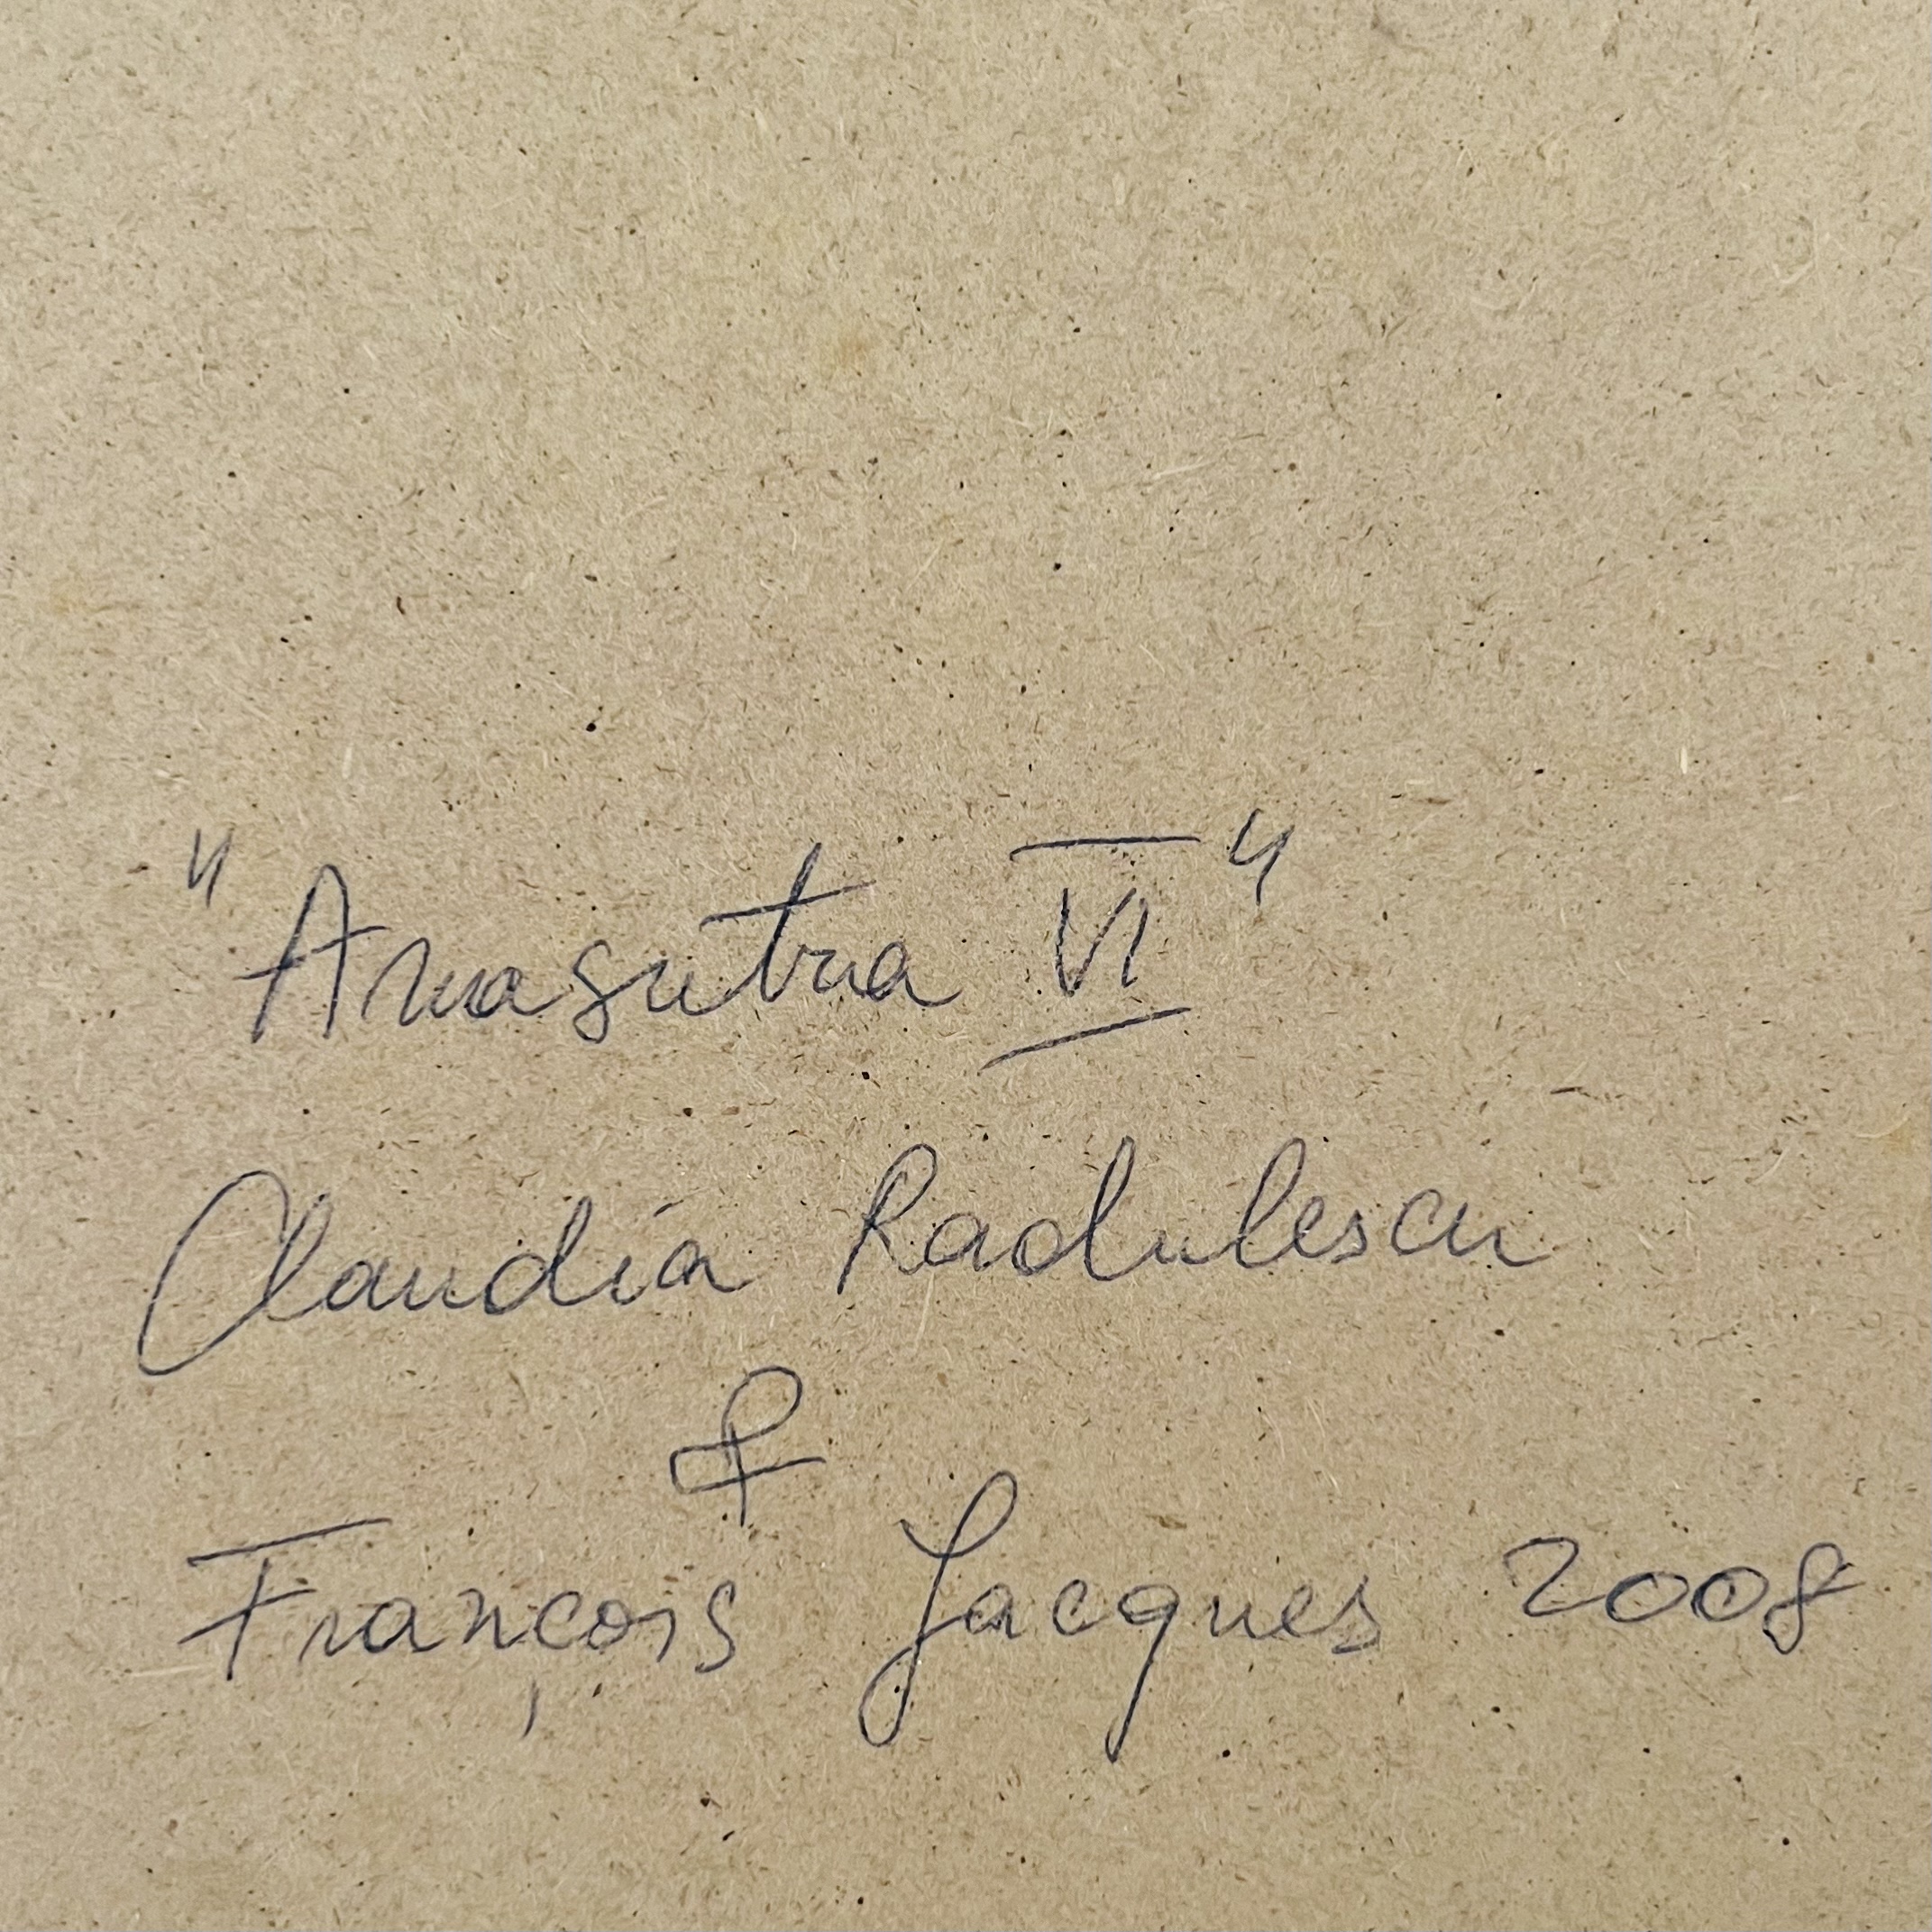 "Amasutra VI"
Claudia Radulescu
&
François Jacques 2008